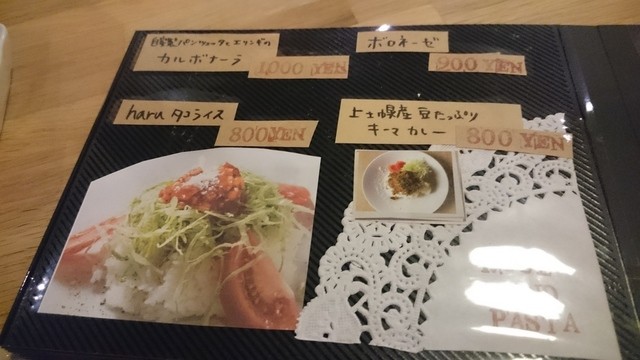 自家製パンチェッタとエリンギの
カルボナーラ
1,000 YEN
ボロネーゼ
900 YEN
haru タコライス
800 YEN
上士幌産 豆たっぷり
キーマ カレー
800 YEN
PASTA